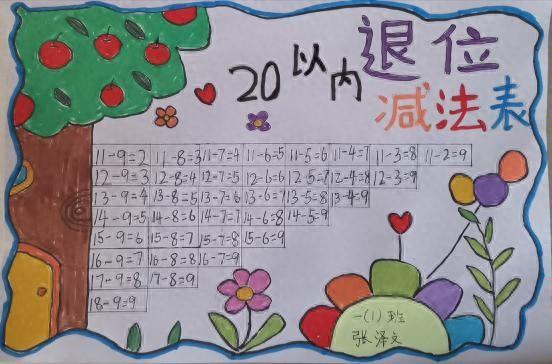 20以内退位
减法表
11-9=2 11-8=3 11-7=4 11-6=5 11-5=6 11-4=7 11-3=8 11-2=9
12-9=3 12-8=4 12-7=5 12-6=6 12-5=7 12-4=8 12-3=9
13-9=4 13-8=5 13-7=6 13-6=7 13-5=8 13-4=9
14-9=5 14-8=6 14-7=7 14-6=8 14-5=9
15-9=6 15-8=7 15-7=8 15-6=9
16-9=7 16-8=8 16-7=9
17-9=8 17-8=9
18-9=9
一(1)班
张泽文